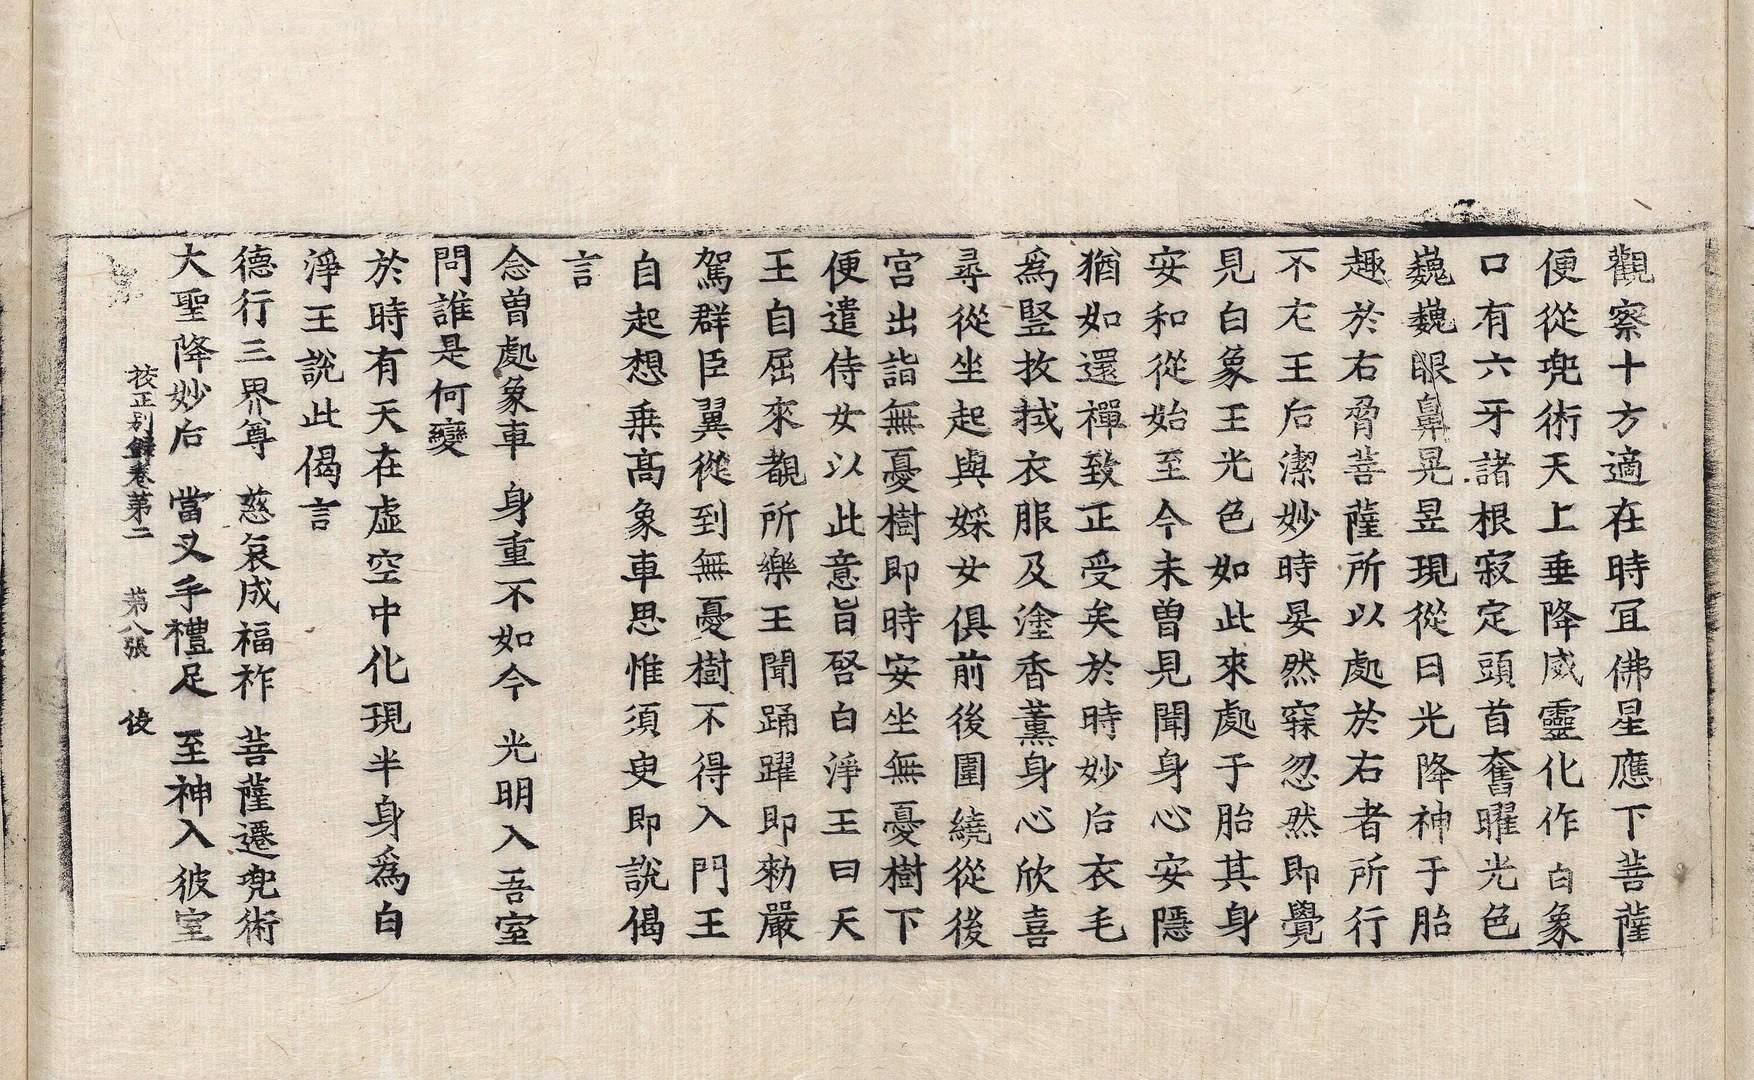 觀察十方適在時冝佛星應下菩薩
便從兜術天上垂降威靈化作白象
口有六牙諸根寂定頭首奮曜光色
巍巍眼鼻晃昱現從日光降神于胎
趣於右脅菩薩所以處於右者所行
不左王后潔妙時晏然寐忽然即覺
見白象王光色如此來處于胎其身
安和從始至今未曾見聞身心安隱
猶如還禪致正受矣於時妙后衣毛
爲竪抆拭衣服及塗香薰身心欣喜
尋從坐起與婇女俱前後圍繞從後
宮出詣無憂樹即時安坐無憂樹下
便遣侍女以此意旨啓白淨王曰天
王自屈來覩所樂王聞踊躍即勑嚴
駕群臣翼從到無憂樹不得入門王
自起想乗髙象車思惟須臾即說偈
言
念曾處象車 身重不如今 光明入吾室
問誰是何變
於時有天在虛空中化現半身爲白
淨王說此偈言
德行三界尊 慈哀成福祚 菩薩遷兜術
大聖降妙后 當叉手禮足 至神入彼室
挍正別錄卷第二 第八張 俊